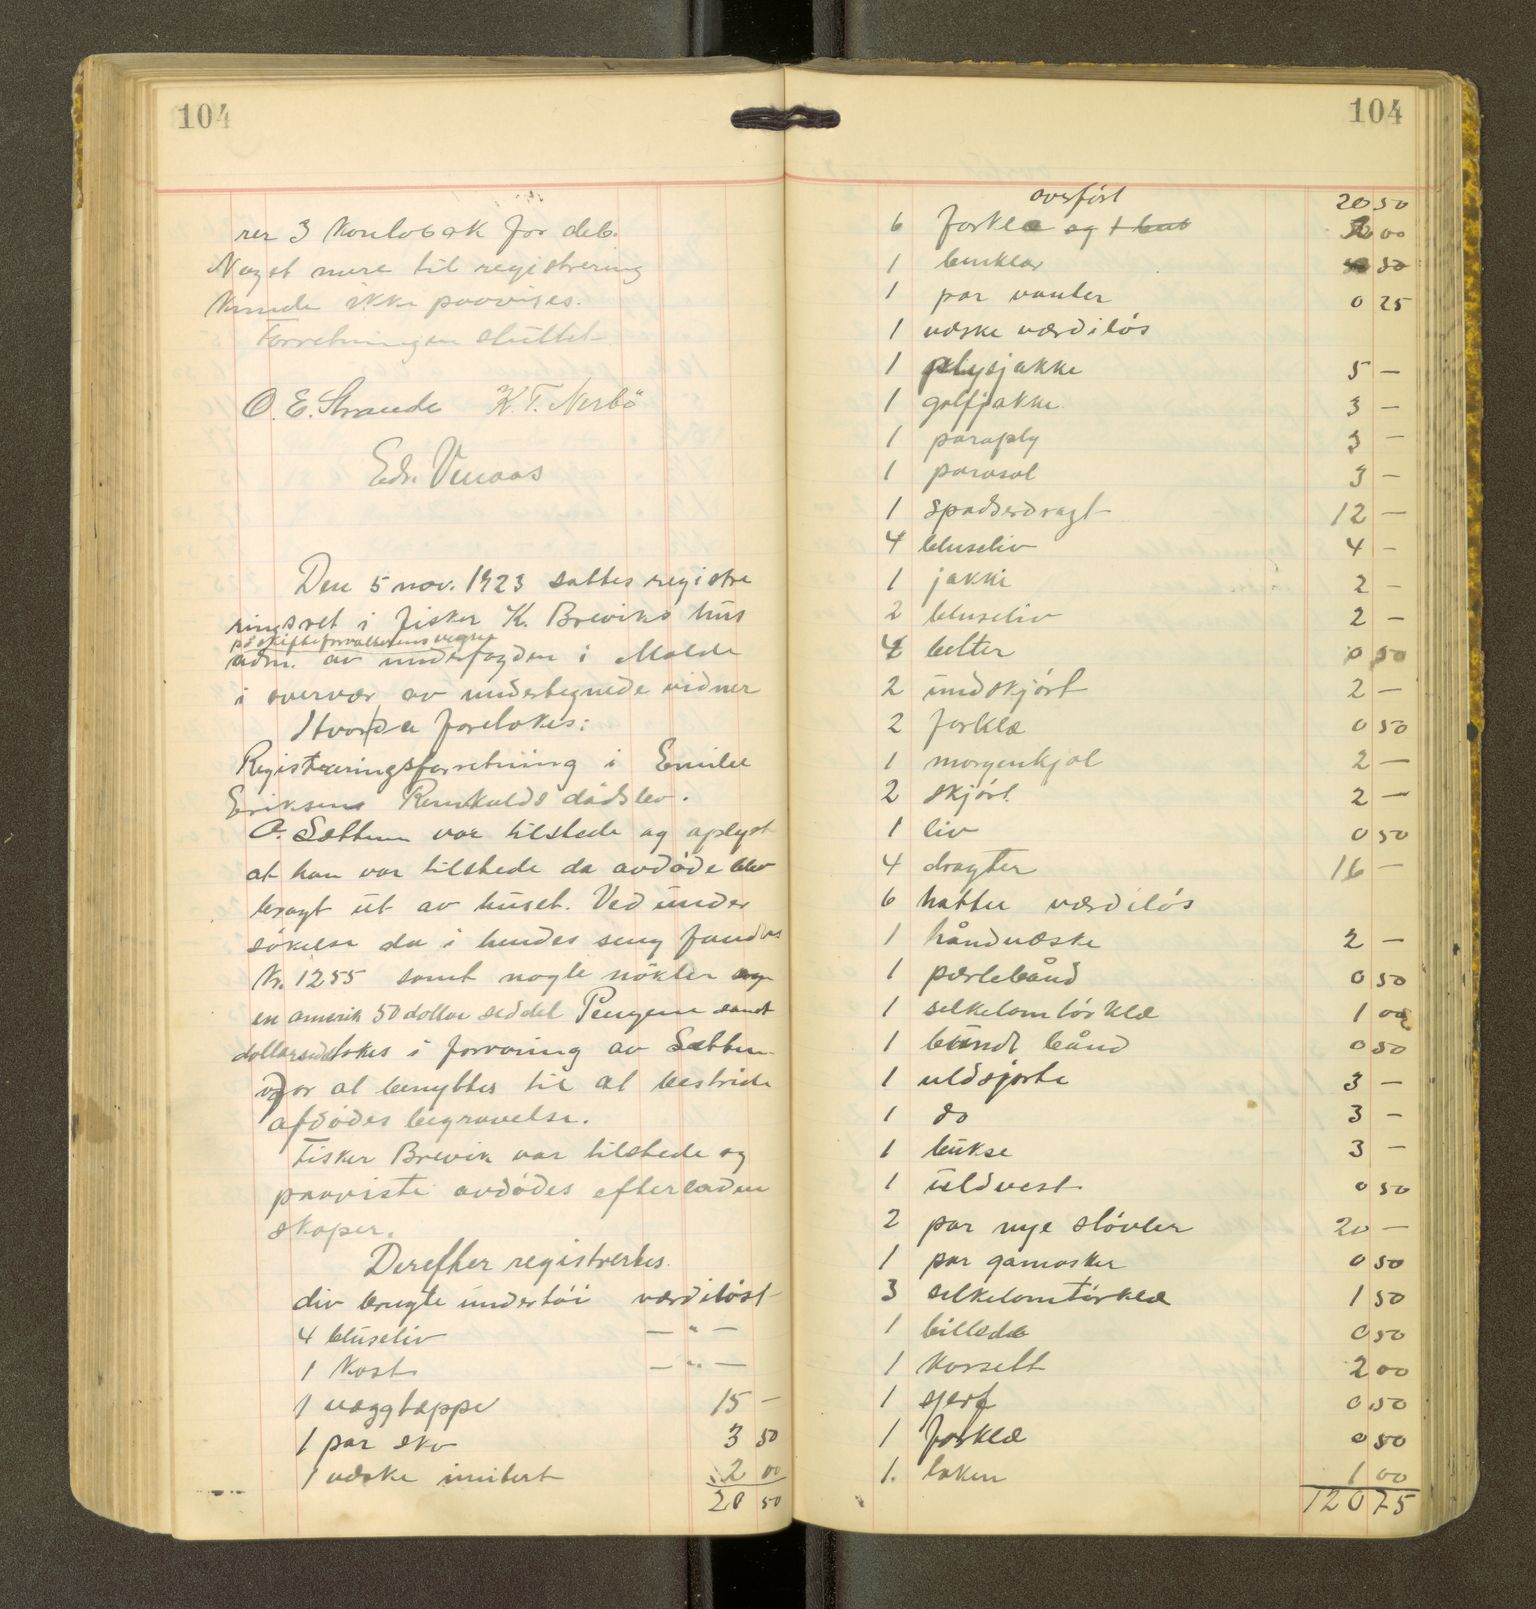 104
rer 3 for deb.
Noget mere til registrering
kunde ikke paavises.
Forretningen sluttet
O. E. Strande K. T. Nerbö
Edv. Venaas
Den 5 nov. 1923 sattes registre
ringsret i fisker K. Breviks hus
på skifteforvalterens vegne
adm. av underfogden i Molde
i overvær av undertegnede vidner
Hvorda foretokes:
Registreringsforretning i Emilie
Eriksens Remkulds dødsbo.
O. Sættem var tilstede og oplyst
at han var tilstede da avdøde blev
bragt ut av huset. Ved under
søkelse da i hendes seng fandtes
kr. 1255 samt nogle nökler og
en amerik 50 dollar seddel Pengene samt
dollarseddel tokes i forvaring av Sættem
for at benyttes til at bestride
afdødes begravelse.
Fisker Brevik var tilstede og
paaviste avdødes efterladen
skaper.
Derefter registrertes.
div brugte undertöi værdiløst
4 bluseliv — " —
1 Kost — " —
1 væggtæppe 15 —
1 par sko 3 50
1 væske imitert 2 00
20 50
104
overført 20 50
6 forklæ og 00
1 benklær 50
1 par vanter 0 25
1 væske værdiløs
1 plysjakke 5 —
1 golfjakke 3 —
1 paraply 3 —
1 parasol 3 —
1 spadserdragt 12 —
4 bluseliv 4 —
1 jakke 2 —
2 bluseliv 2 —
4 belter 0 50
2 undskjørt 2 —
2 forklæ 0 50
1 morgenkjol 2 —
2 skjørt 2 —
1 liv 0 50
4 dragter 16 —
6 hatter værdiløs
1 håndvæske 2 —
1 perlebånd 0 50
1 silkelomtørklæ 1 00
1 bundt bånd 0 50
1 uldsjorte 3 —
1 do 3 —
1 bukse 3 —
1 uldvest 0 50
2 par nye støvler 20 —
1 par gamasker 0 50
3 silkelomtørklæ 1 50
1 billede 0 50
1 korsett 2 00
1 sjerf 0 50
1 forklæ 0 50
1. laken 1 00
120 75